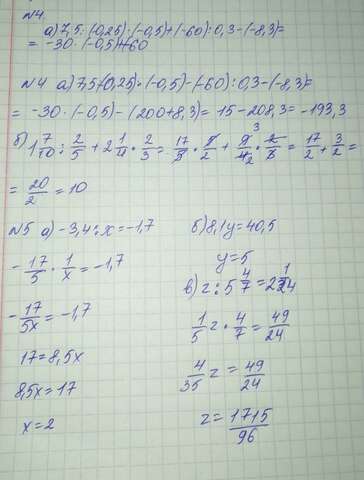 №4.
а) 7,5 : (0,25) · (-0,5) + (-60) : 0,3 - (-8,3) =
= -30 · (-0,5) + 60
№4 а) 7,5 (0,25) · (-0,5) - (-60) : 0,3 - (-8,3) =
= -30 · (-0,5) - (200 + 8,3) = 15 - 208,3 = -193,3
б) 1 7/10 : 2/5 + 2 1/4 · 2/3 = 17/2 + 3/2 =
= 20/2 = 10
№5 а) -3,4 : x = -1,7
- 17/5 · 1/x = -1,7
- 17/5x = -1,7
17 = 8,5x
8,5x = 17
x = 2
б) 8,1y = 40,5
y = 5
в) z : 5 4/7 = 2 1/24
1/5 z · 4/7 = 49/24
4/35 z = 49/24
z = 1715/96